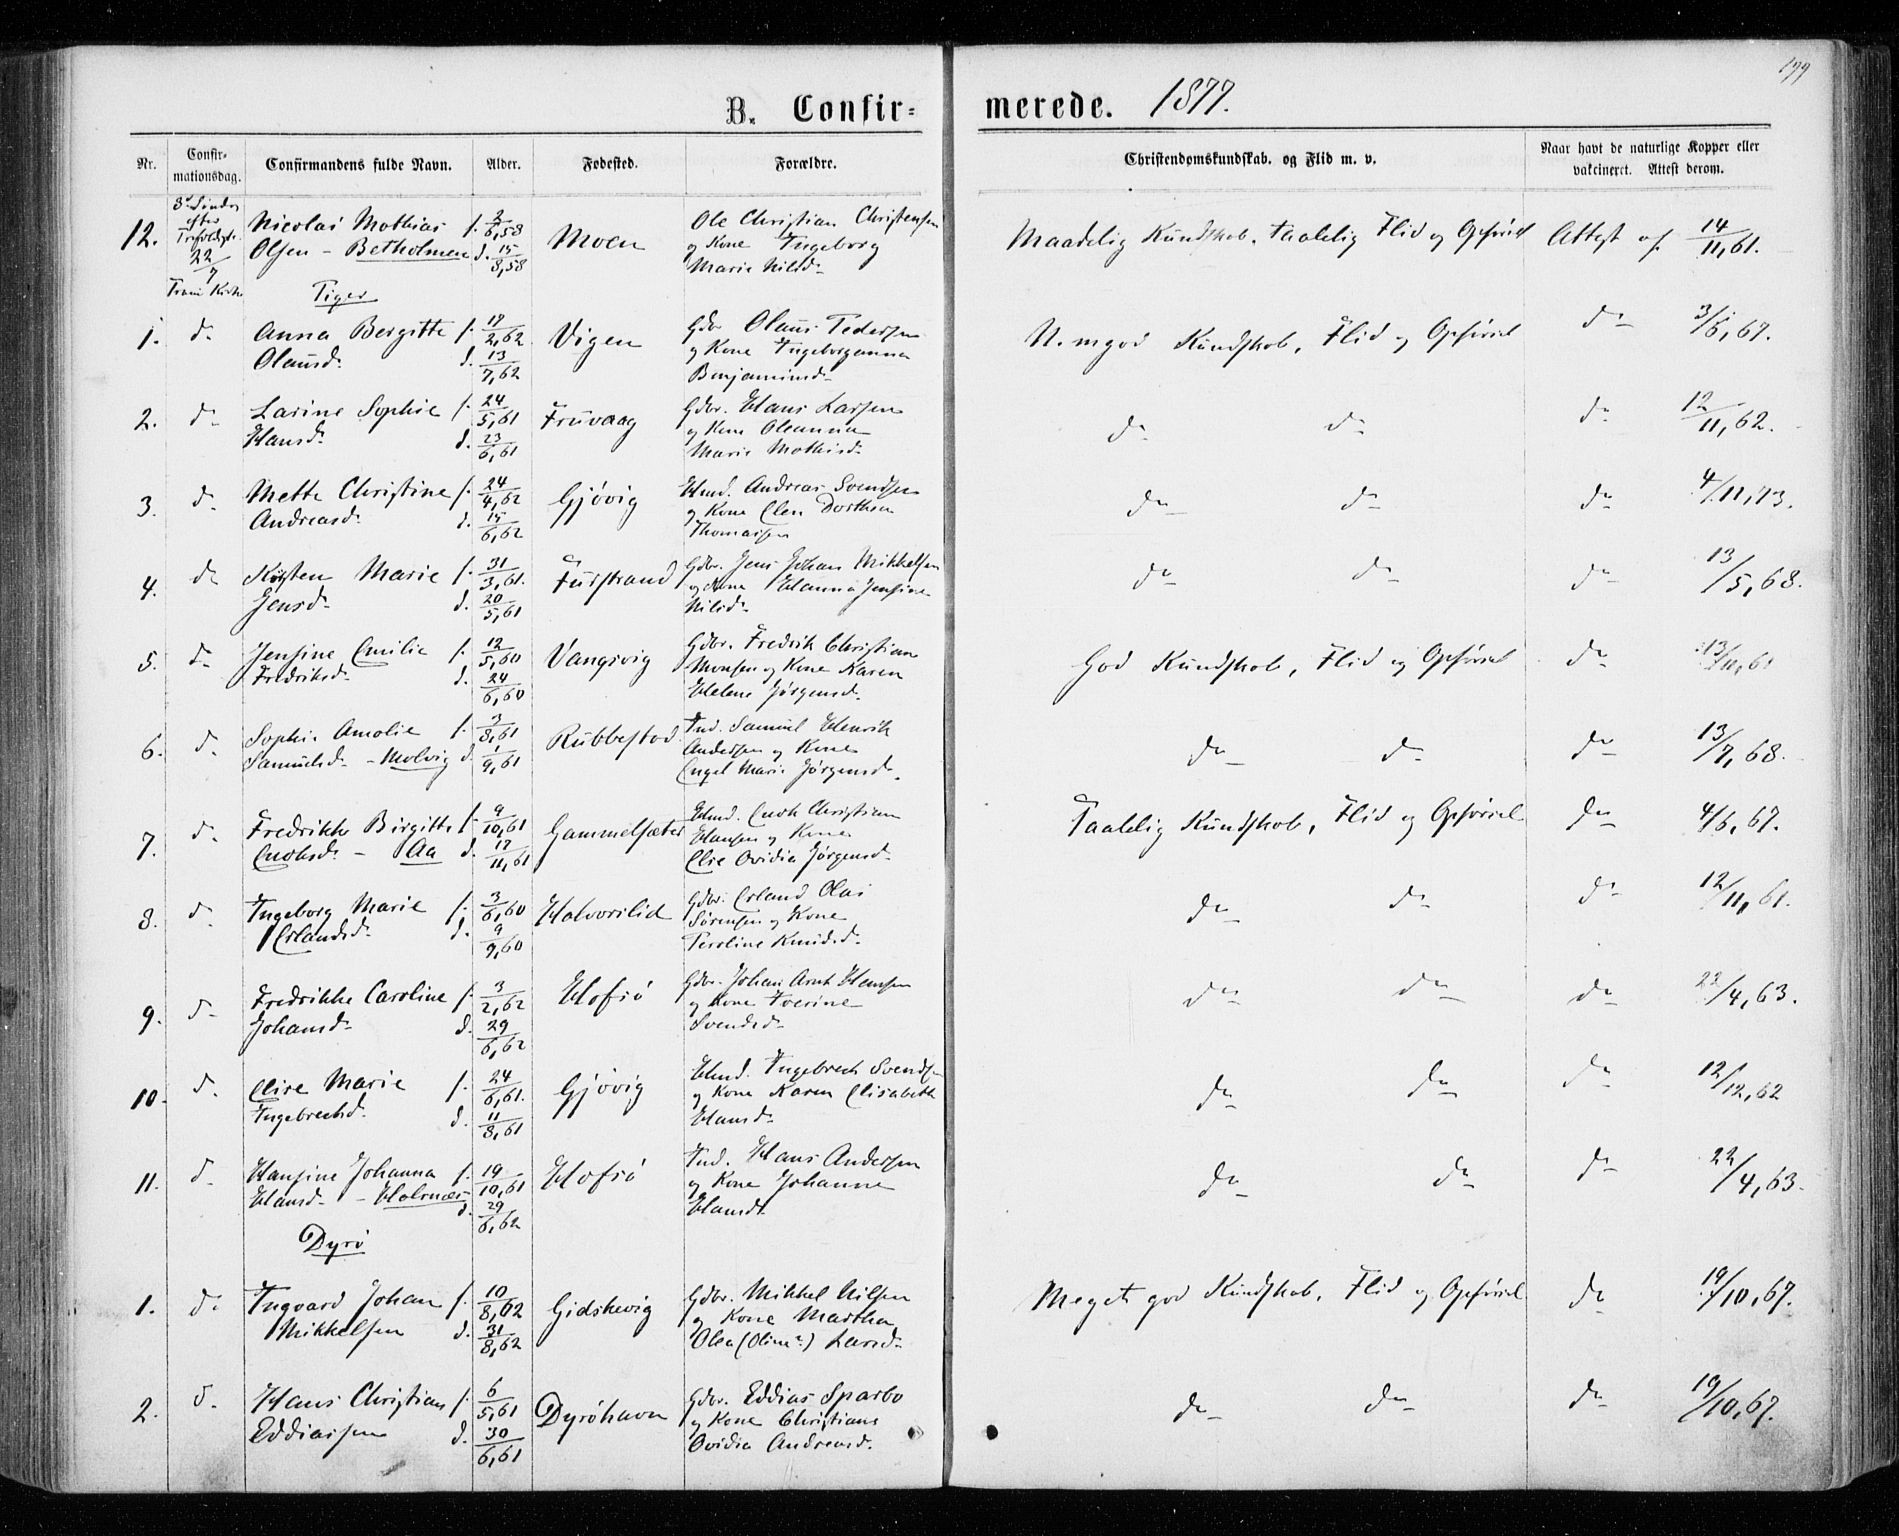 199
B. Confirmerede. 1877.
Nr.
Confirmationsdag.
Confirmandens fulde Navn.
Alder.
Fødested.
Forældre.
Christendomskundskab. og Flid m. v.
Naar havt de naturlige Kopper eller
vakcineret. Attest derom.
12.
3d Søndag
efter
22/7
Nicolai Mathias f. 2/6,58
Olsen - Betholmen d. 15/8,58
Moen
Ole Christian Christensen
og Kone Ingeborg
Marie Nilsd.
Maadelig Kundskab, taalelig Flid og Opførsel
Attest af 14/11,61.
Tranø Kirke
Piger
1. do Anna Bergitte f. 17/2,62
Olausd. d. 13/7,62
Vigen
Gdbr. Olaus Pedersen
og Kone Ingeborganna
Benjaminsd.
N. mgod Kundskab, Flid og Opførsel
do 3/6,67.
2. do Larine Sophie f. 24/5,61
Hansd. d. 23/6,61
Fruvaag
Gdbr. Hans Larsen
og Kone Oleanna
Marie Mathisd.
do do do 12/11,62.
3. do Mette Christine f. 24/4,62
Andreasd. d. 15/6,62
Gjøvig
Hmd. Andreas Svendsen
og Kone Elen Dorthea
Thomassen
do do do 4/11,73.
4. do Kirsten Marie f. 31/3,61.
Jensd. d. 20/5,61
Furstrand
Gdbr. Jens Johan Mikkelsen
og Kone Hanna Jensine
Nilsd.
do do do 13/5,68.
5. do Jensine Emilie f. 12/5,60
Fredriksd. d. 24/6,60
Vangsvig
Gdbr. Fredrik Christian
Monsen og Kone Karen
Helene Jørgensd.
God Kundskab, Flid og Opførsel
do 13/11,61
6. do Sophie Amalie f. 3/8,61
Samuelsd. - Molvig d. 1/9,61
Rubbestad
Ind. Samuel Henrik
Andersen og Kone
Engel Marie Jørgensd.
do do do 13/7,68.
7. do Fredrikke Birgitte f. 9/10,61
Enoksd. - Aa d. 17/11,61
Gammelsæter
Hmd. Enok Christian
Hansen og Kone
Elie Ovidia Jørgensd.
Taalelig Kundskab, Flid og Opførsel
do 4/6,67.
8. do Ingeborg Marie f. 3/6,60
Erlandsd. d. 9/9,60
Halvorslid
Gdbr. Erland Olai
Sørensen og Kone
Peroline Knudsd.
do do do 12/11,61.
9. do Fredrikke Caroline f. 3/2,62
Johansd. d. 29/6,62
Hofsø
Gdbr. Johan Arnt Hansen
og Kone Iverine
Svendsd.
do do do 22/4,63.
10. do Elise Marie f. 24/6,61.
Ingebrectsd. d. 11/8,61
Gjøvig
Hmd. Ingebrect Svends.
og Kone Karen Elisabeth
Hansd.
do do do 12/12,62
11. do Hansine Johanna f. 19/10,61
Hansd. - Holmnæs d. 29/6,62
Hofsø
Ind. Hans Andersen
og Kone Johanne
Hansd.
do do do 22/4,63.
Dyrø
1. do Ingvard Johan f. 10/8,62
Mikkelsen d. 31/8,62
Gidskevig
Gdbr. Mikkel Nilsen
og Kone Martha
Olea (Oline?) Larsd.
Meget god Kundskab, Flid og Opførsel
do 19/10,67.
2. do Hans Christian f. 6/5,61
Eddiassen d. 30/6,61
Dyrøhavn
Gdbr. Eddias Sparbo
og Kone Christiane
Ovidia Andreasd.
do do do 19/10,67.